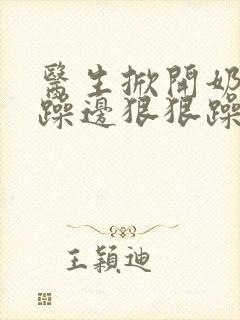 醫生掀開奶
躁邊狠狠躁
王穎迪